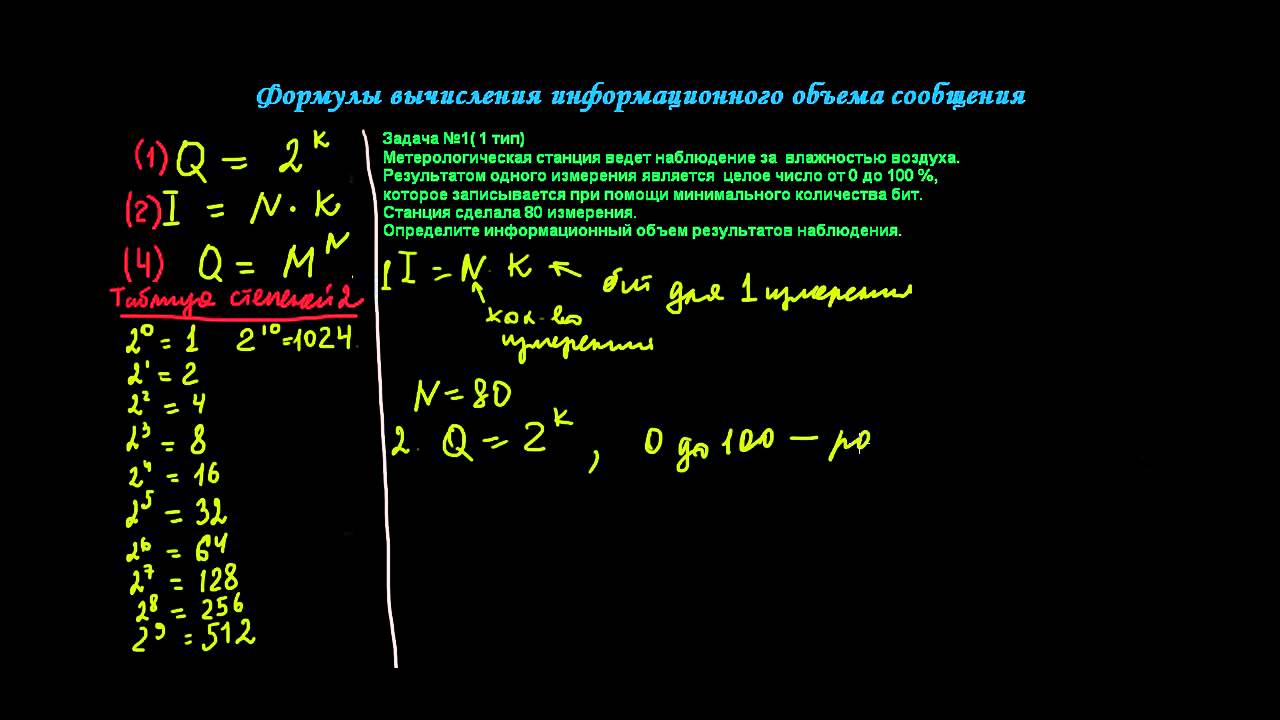 Формулы вычисления информационного объема сообщения
(1) Q = 2^K
(2) I = N · K
(4) Q = M^N
Таблица степеней 2
2^0 = 1 2^10 = 1024
2^1 = 2
2^2 = 4
2^3 = 8
2^4 = 16
2^5 = 32
2^6 = 64
2^7 = 128
2^8 = 256
2^9 = 512
Задача №1( 1 тип)
Метерологическая станция ведет наблюдение за влажностью воздуха.
Результатом одного измерения является целое число от 0 до 100 %,
которое записывается при помощи минимального количества бит.
Станция сделала 80 измерения.
Определите информационный объем результатов наблюдения.
1 I = N · K ← бит для 1 измерения
кол-во
измерения
N = 80
2. Q = 2^K , 0 до 100 — ро